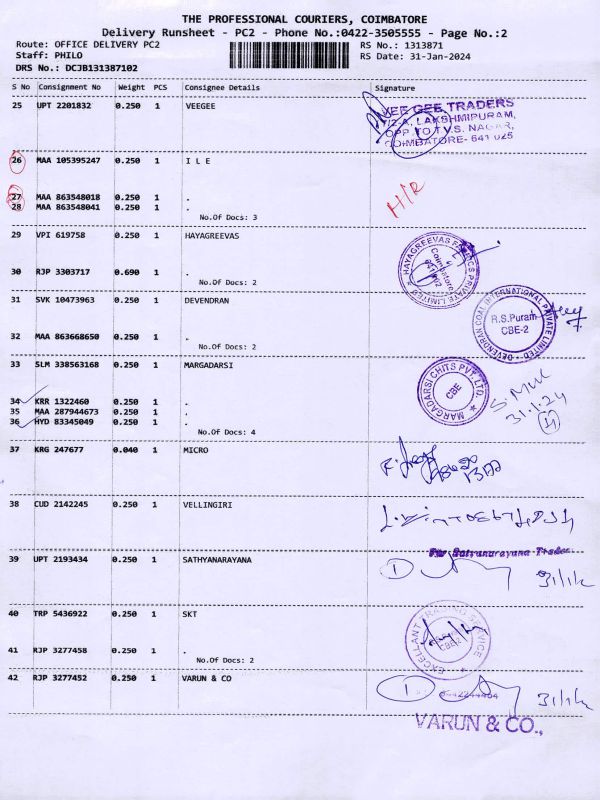 THE PROFESSIONAL COURIERS, COIMBATORE
Delivery Runsheet - PC2 - Phone No.:0422-3505555 - Page No.:2
Route: OFFICE DELIVERY PC2
RS No.: 1313871
Staff: PHILO
RS Date: 31-Jan-2024
DRS No.: DCJB131387102
S No Consignment No Weight PCS Consignee Details Signature
25 UPT 2201832 0.250 1 VEEGEE
VEE GEE TRADERS
LAKSHMIPURAM,
OPP. TO T.V.S. NAGAR,
COIMBATORE- 641 025
26 MAA 105395247 0.250 1 I L E
27 MAA 863548018 0.250 1 .
28 MAA 863548041 0.250 1 .
No.Of Docs: 3
H/R
29 VPI 619758 0.250 1 HAYAGREEVAS
30 RJP 3303717 0.690 1 .
No.Of Docs: 2
HAYAGREEVAS PRIVATE LIMITED
Coimbatore
31 SVK 10473963 0.250 1 DEVENDRAN
32 MAA 863668650 0.250 1 .
No.Of Docs: 2
DEVENDRAN COAL INTERNATIONAL PRIVATE LIMITED
R.S.Puram
CBE-2
33 SLM 338563168 0.250 1 MARGADARSI
34 KRR 1322460 0.250 1 .
35 MAA 287944673 0.250 1 .
36 HYD 83345049 0.250 1 .
No.Of Docs: 4
MARGADARSI CHITS PVT. LTD.
CBE
31.1.24
37 KRG 247677 0.040 1 MICRO
38 CUD 2142245 0.250 1 VELLINGIRI
39 UPT 2193434 0.250 1 SATHYANARAYANA
For Satyanarayana Trader
1
40 TRP 5436922 0.250 1 SKT
41 RJP 3277458 0.250 1 .
No.Of Docs: 2
EXCELLANT TRADING SERVICE
CBE-2
42 RJP 3277452 0.250 1 VARUN & CO
1
VARUN & CO.,